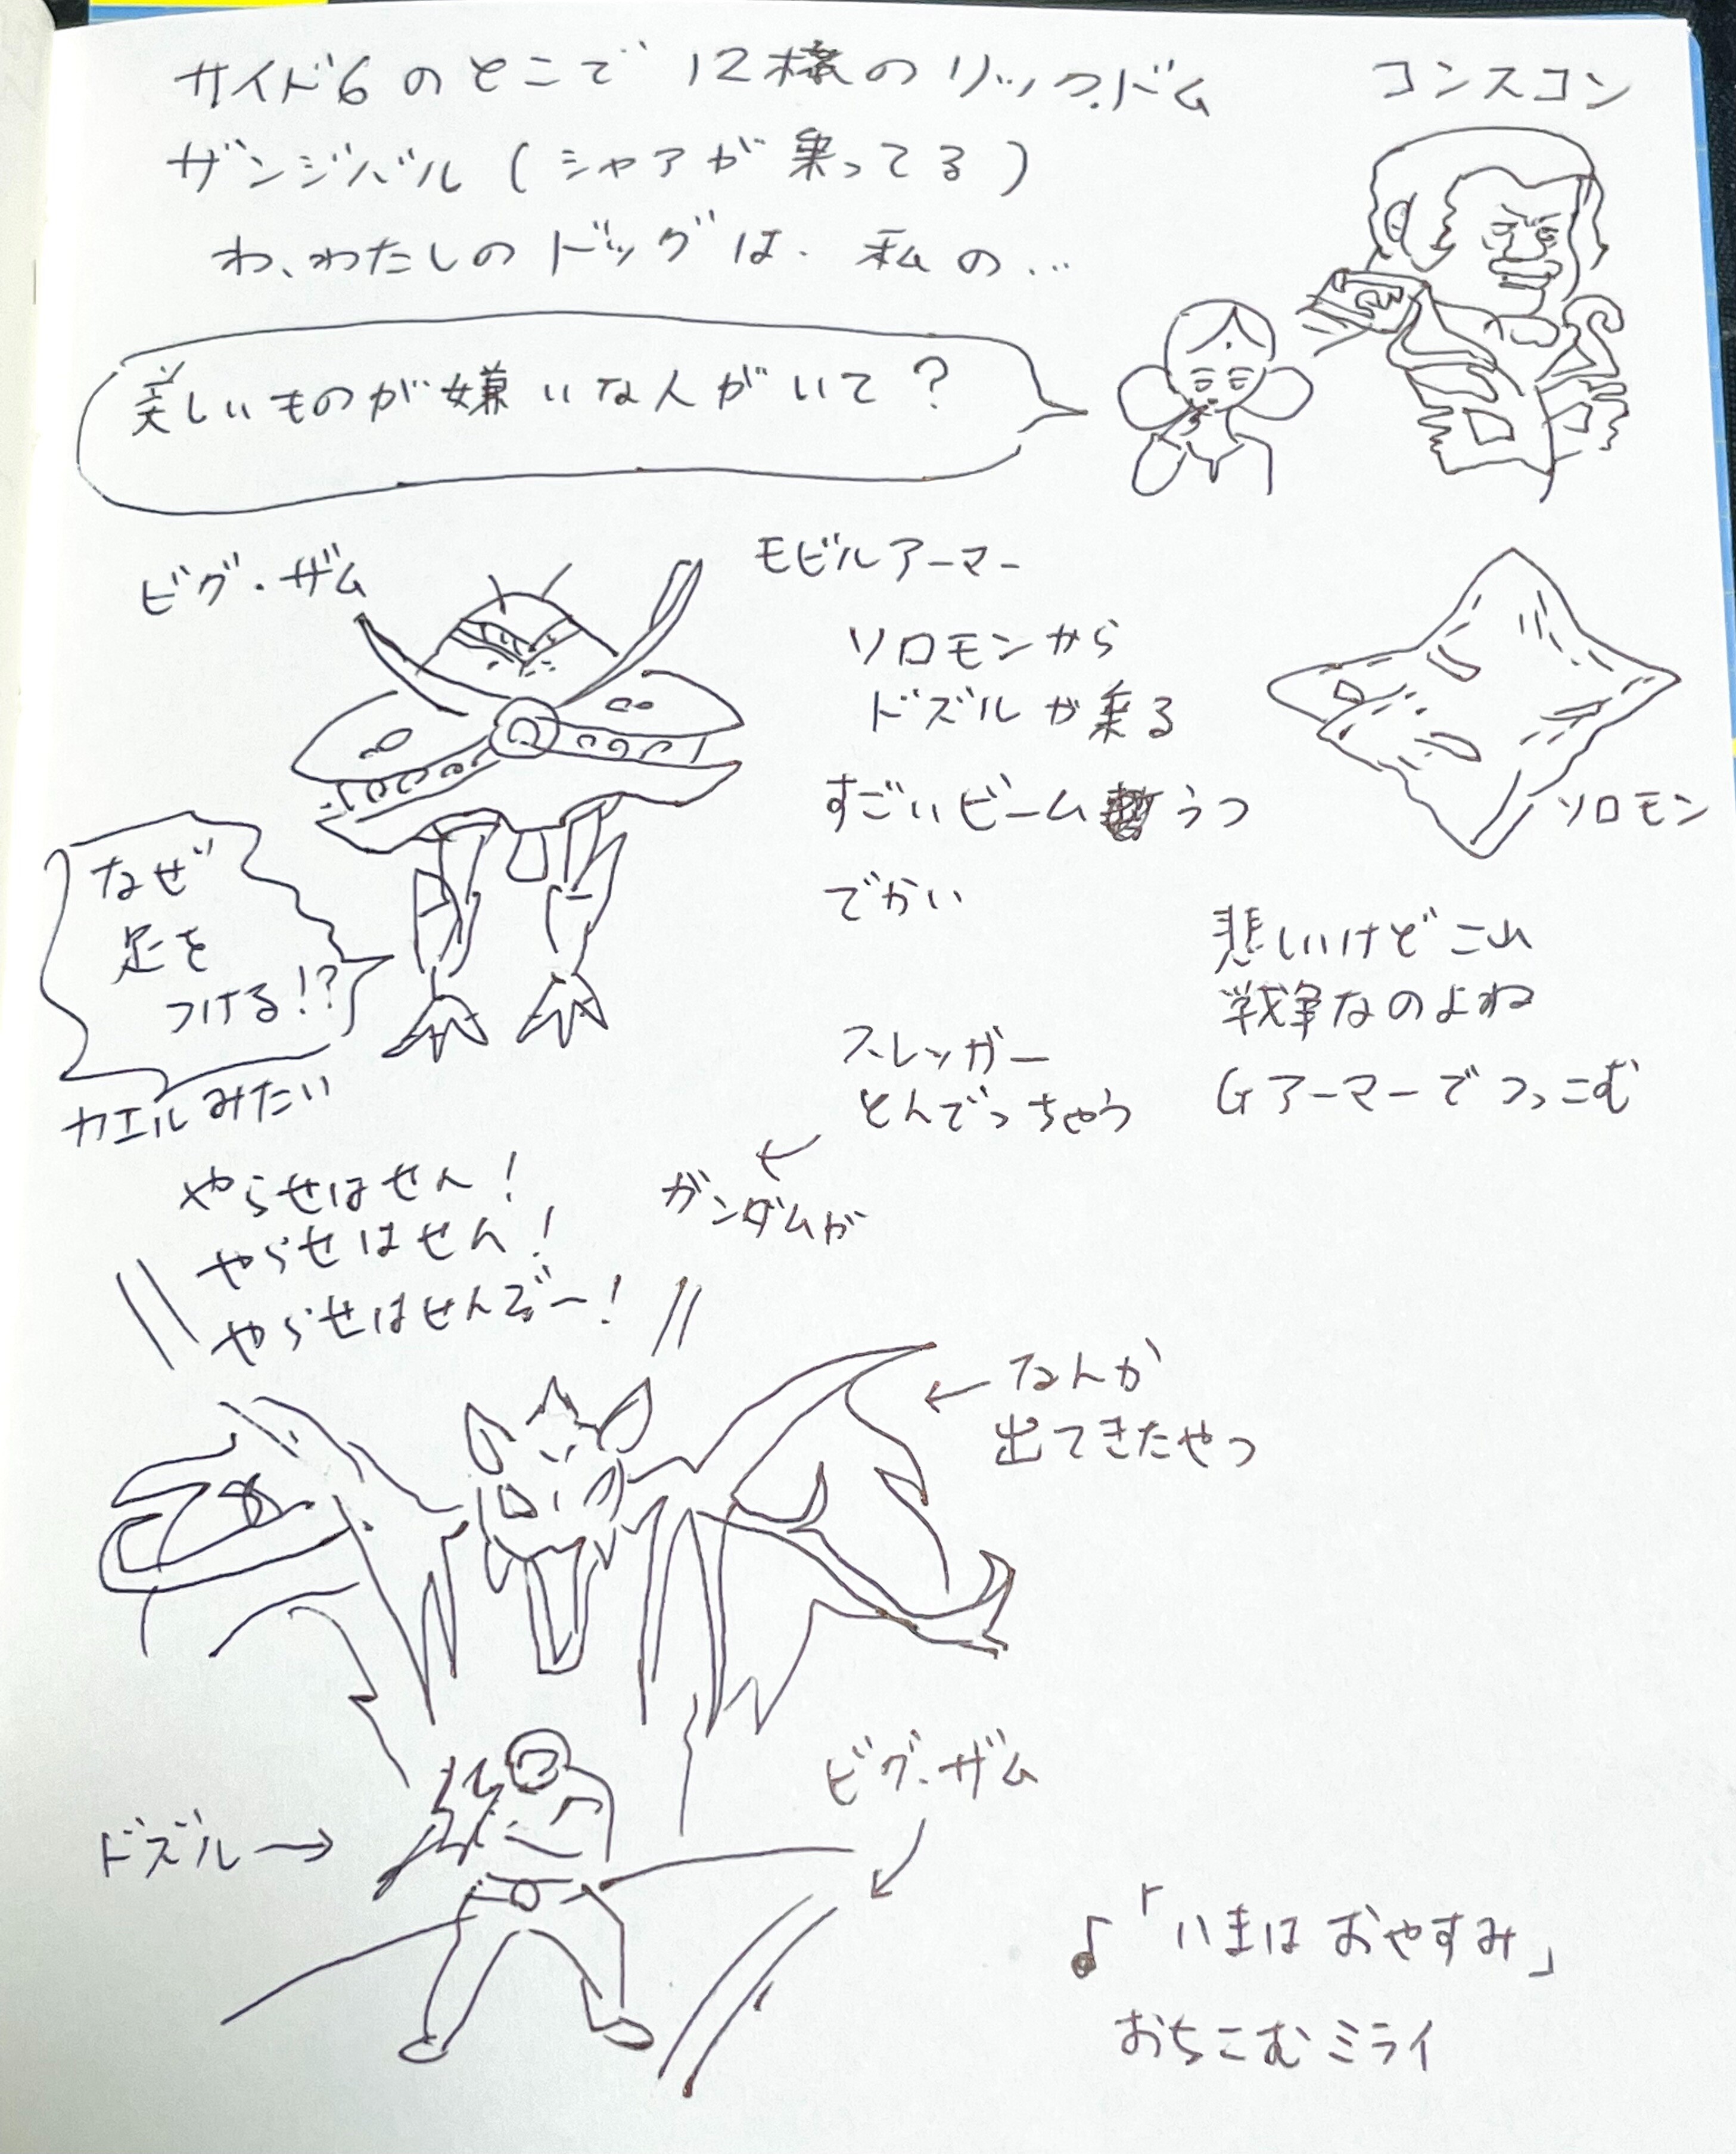 サイド6のとこで 12様のリック.ドム
コンスコン
ザンジバル(シャアが乗ってる)
わ、わたしのドッグは、私の…
美しいものが嫌いな人がいて?
ビグ・ザム
モビルアーマー
ソロモンから
ドズルが乗る
すごいビームうつ
でかい
ソロモン
なぜ
足を
つける!?
カエルみたい
悲しいけどこれ
戦争なのよね
Gアーマーでつっこむ
スレッガー
とんでっちゃう
ガンダムが
やらせはせん!
やらせはせん!
やらせはせんぞー!
なんか
出てきたやつ
ドズル→
ビグ・ザム
♪「いまはおやすみ」
おちこむミライ